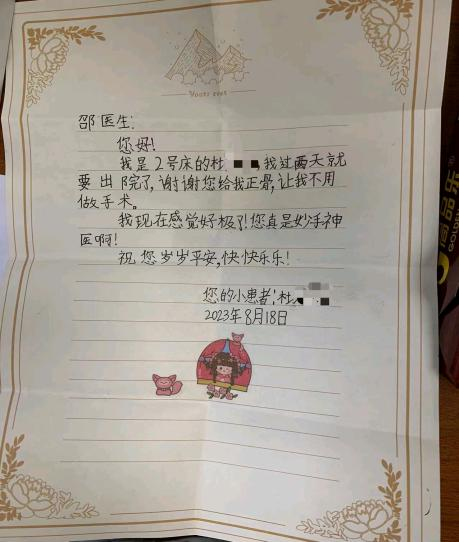 Yours ever
邵医生:
您好!
我是2号床的杜 ,我过两天就
要出院了,谢谢您给我正骨,让我不用
做手术。
我现在感觉好极了!您真是妙手神
医啊!
祝您岁岁平安,快快乐乐!
您的小患者:杜
2023年8月18日